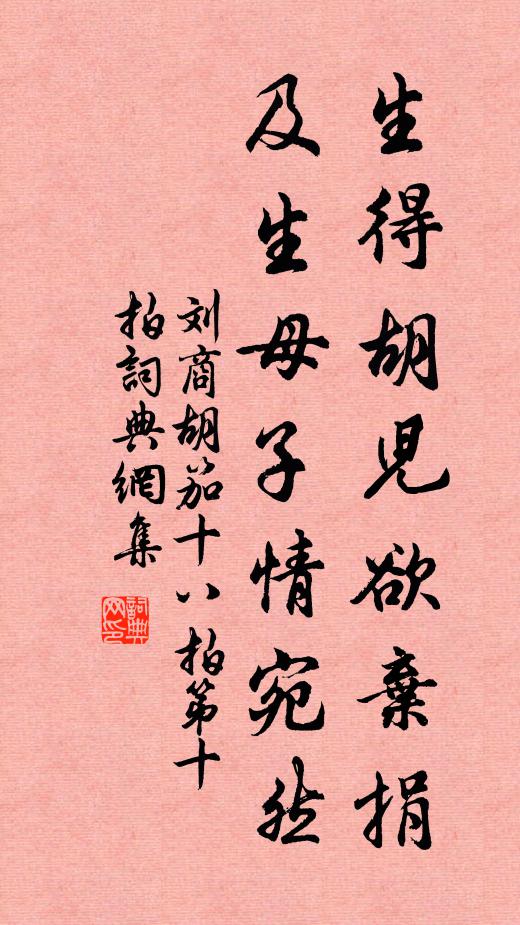 生得胡児欲棄捐
及生母子情宛然
刘商胡笳十八拍第十
拍詞典網集
詞典网印